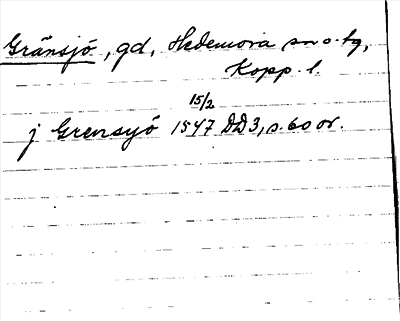 Gränsjö, gd, Hedemora sn o. tg,
Kopp. l.
15/2
j Grensyó 1547 DD3, s. 60 or.